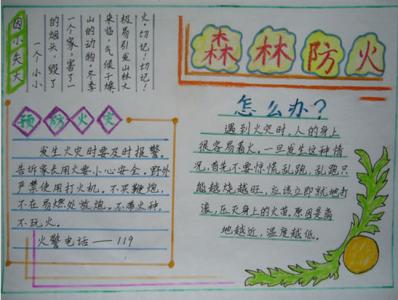 森林防火
因小失大
一个小小
的烟头,毁了
一个家,害了一
山的动物。冬季
来临,气候干燥
极易引发山林火
火,切记!切记!
预防火灾
发生火灾时要及时报警。
告诉家长用火要小心安全,野外
严禁使用打火机。不买鞭炮,
不在易燃处放炮。不带火种,
不玩火。
火警电话——119
怎么办?
遇到火灾时,人的身上
很容易着火,一旦发生这种情
况,首先不要惊慌,乱跑,乱跑只
能越烧越旺,应该立即就地打
滚,压灭身上的火苗。原因是离
地越近,温度越低。